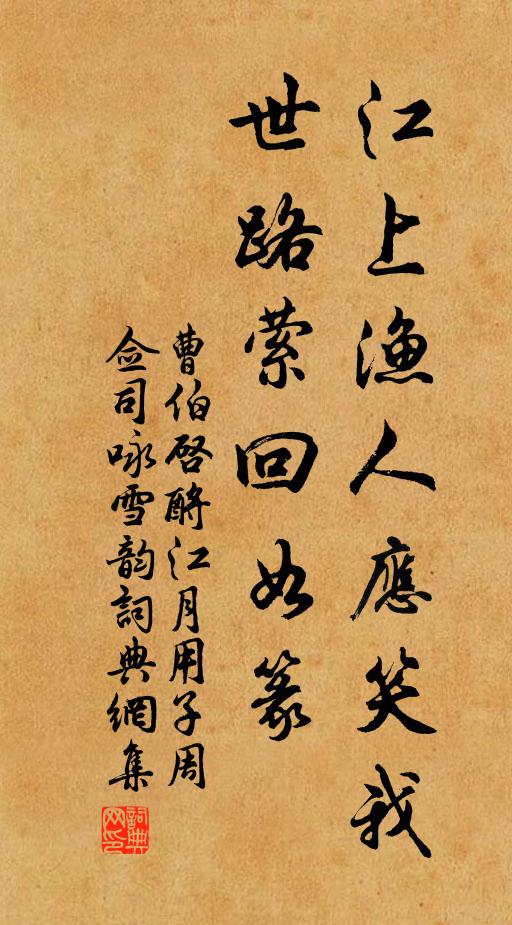 江上漁人應笑我
世路萦回如篆
曹伯啓酹江月用子周
佥司咏雪韵詞典網集
詞典网印